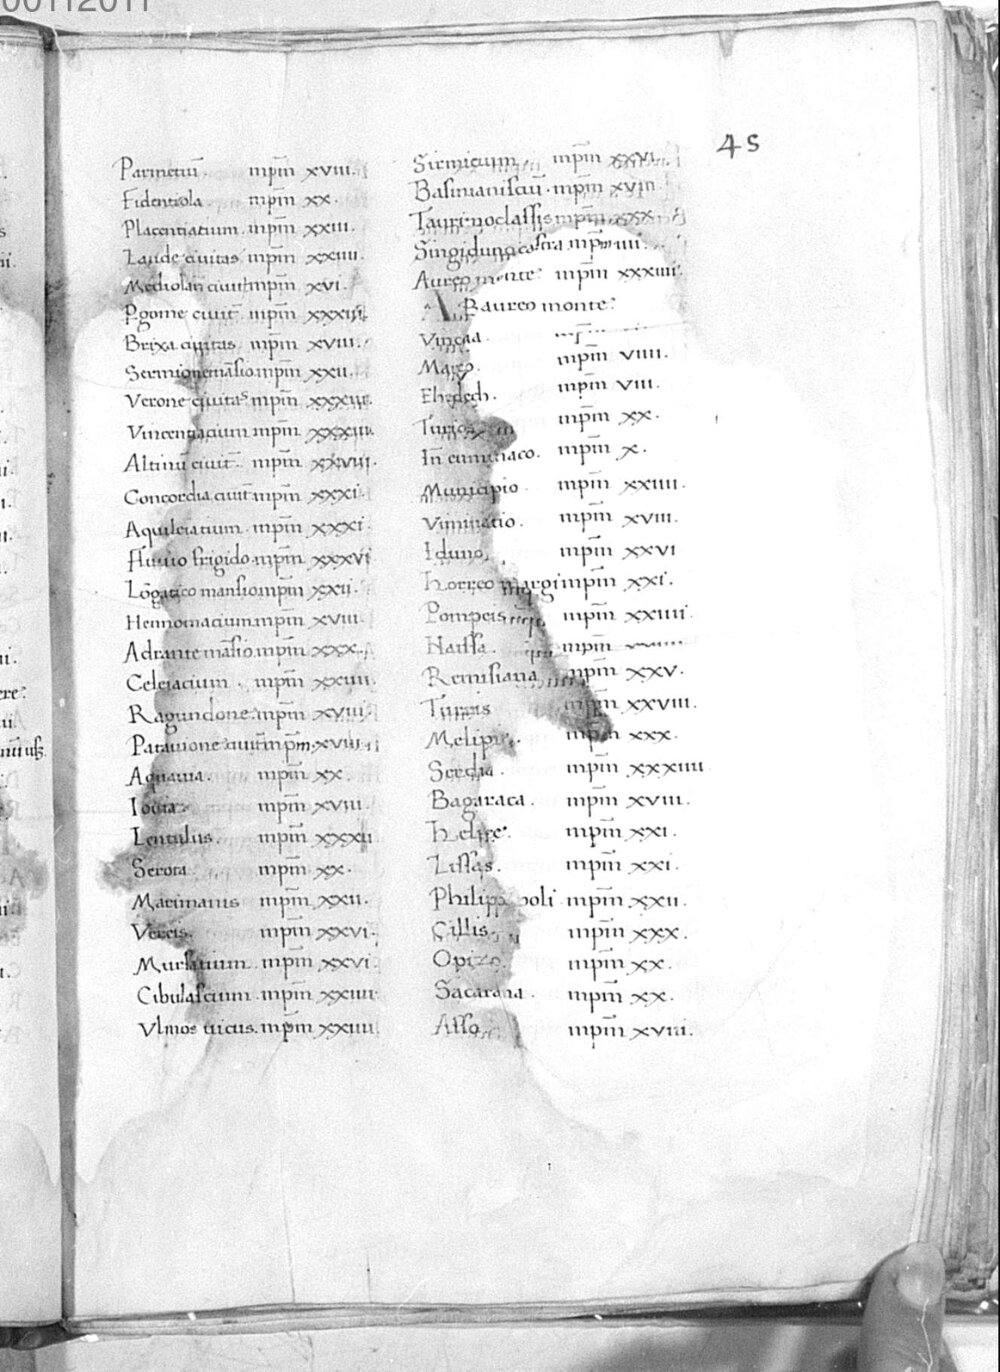 45
Parmetiũ. mp̃m xviii.
Fidentiola mp̃m xx.
Placentiatium. mp̃m xxiii.
Laude ciuitas mp̃m xxiiii.
mp̃m xvi.
mp̃m
Brixa ciuitas mp̃m xviii.
mp̃m xxii.
Verone ciuitas mp̃m
Vincentiacium mp̃m
Altinũ ciuit̃. mp̃m xxviii.
Concordia ciuit̃ mp̃m xxxi.
Aquileiatium. mp̃m xxxi.
fluuio frigido. mp̃m xxxvi
mansio mp̃m xxii.
Hennomacium. mp̃m xviii.
Adrante mãsio. mp̃m xxx.
Celeiacium. mp̃m xxiiii.
Ragundone. mp̃m xviii
Patauione ciuit̃ mp̃m. xviii.
Aquauia. mp̃m xx.
Iouia. mp̃m xviii.
Lentulus. mp̃m xxxii
Serota mp̃m xx.
Marinianis mp̃m xxii.
Vereis. mp̃m xxvi.
Mursatium. mp̃m xxvi.
Cibalascium. mp̃m xxiiii
Vlmos uicus. mp̃m xxiiii
Sirmicum. mp̃m xxvi.
Basimanisciũ. mp̃m xviii
Taurinoclassis mp̃m xxx.
Singidunocastra mp̃m iiii.
Aureo monte. mp̃m xxxiiii.
Ab aureo monte.
Vincaa.
Margo. mp̃m viiii.
mp̃m viii.
mp̃m xx.
mp̃m x.
Municipio. mp̃m xxiiii.
Viminatio. mp̃m xviii.
Iduno. mp̃m xxvi
horreo margi mp̃m xxi.
Pompeis mp̃m xxiiii
Naissa. mp̃m
Remisiana mp̃m xxv.
Turris mp̃m xxviii.
mp̃m xxx.
Serdia. mp̃m xxxiiii
Bagaraca. mp̃m xviii.
helice. mp̃m xxi.
Lissas. mp̃m xxi.
Philippopoli. mp̃m xxii
Cillis. mp̃m xxx.
Opizo. mp̃m xx.
Sacarana. mp̃m xx.
Asso mp̃m xviii.